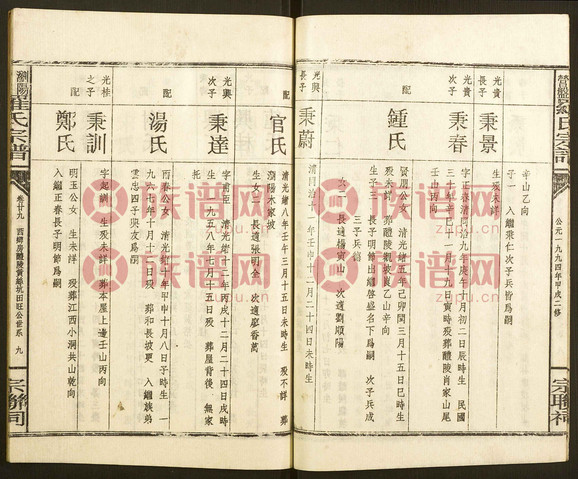 公元一九九四年甲戌二修
宗聯祠
辛山乙向
子一 入繼秉仁次子兵皆爲嗣
光貴
長子
秉景
生歿未詳
光貴
次子
秉春
字正春清同治十九年庚午十月初二日辰時生 民國
三十年辛巳十一月十九日寅時歿葬醴陵肖家山尾
壬丙向
配
鍾氏
賢房公女 清光緒五年己卯閏三月十五日巳時生
歿未詳 葬醴陵觀坡奠乙山辛向
生子三 長子明節出繼啓盛名下爲嗣 次子兵成
三子兵諧
女二 長適楊寅山 次適劉順陽
光興
長子
秉蔚
清同治十二年壬申十二月二十四日未時生
配
官氏
清光緒八年壬午三月十五日未時生 歿不詳 葬
瀏陽木家坡
生女二 長適張明全 次適廖香萬
光興
次子
秉達
字甫臣 清光緒十二年丙戌十二月二十四日戌時
生 一九五八年七月十五日歿 葬屋背後 無家
托
配
湯氏
酉春公女 清光緒十一年乙酉十月八日子時生 一
九六七年十月十二日歿 葬和長坡更 入繼族弟
雲忠四子興友爲嗣
光桂
之子
秉訓
字起訓 生歿未詳 葬本屋上邊壬山丙向
配
鄭氏
明玉公女 生未詳 歿葬江西小洞共山乾向
入繼正春長子明節爲嗣
瀏陽羅氏宗譜
卷廿九 西鄉房醴陵黃絲坑田旺公世系 九
宗聯祠
族谱网
zupu.cn